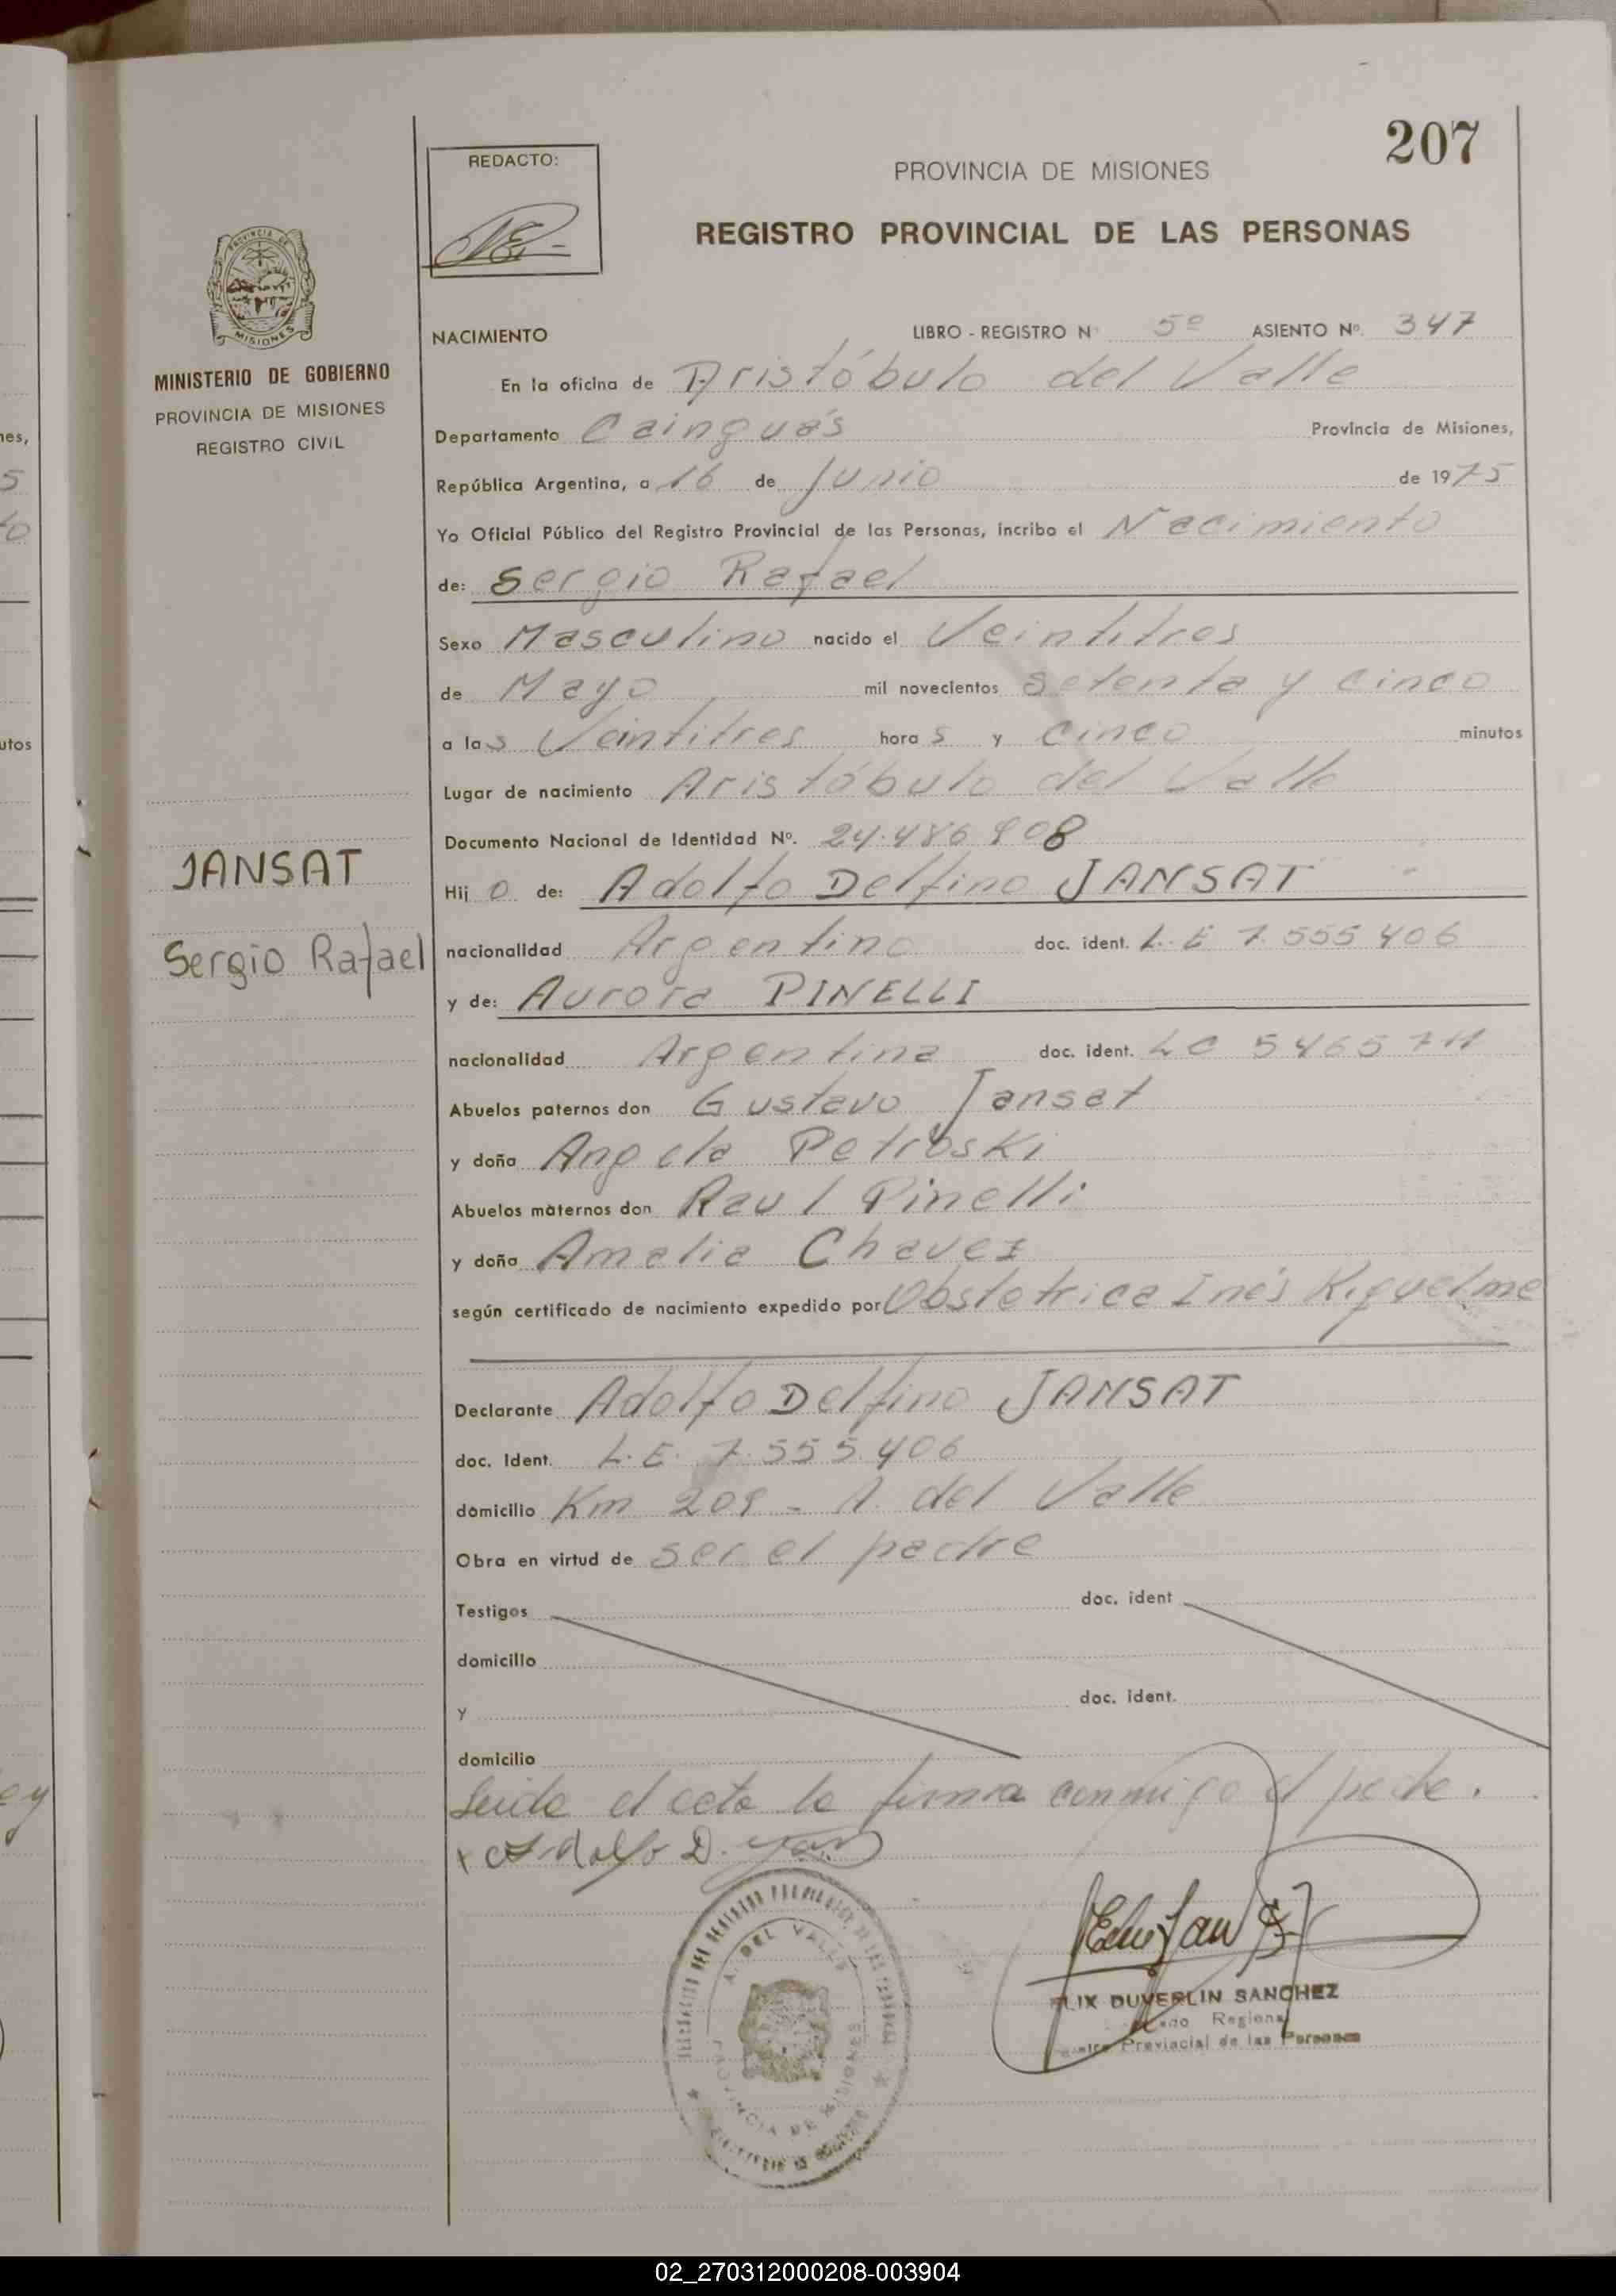 207
REDACTO:
PROVINCIA DE MISIONES
REGISTRO PROVINCIAL DE LAS PERSONAS
PROVINCIA DE
MISIONES
MINISTERIO DE GOBIERNO
PROVINCIA DE MISIONES
REGISTRO CIVIL
NACIMIENTO LIBRO - REGISTRO Nº 5º ASIENTO Nº. 347
En la oficina de Aristóbulo del Valle
Departamento Cainguás Provincia de Misiones,
República Argentina, a 16 de Junio de 1975
Yo Oficial Público del Registro Provincial de las Personas, incribo el Nacimiento
de: Sergio Rafael
Sexo Masculino nacido el Veintitres
de Mayo mil novecientos setenta y cinco
a las Veintitres horas y cinco minutos
Lugar de nacimiento Aristóbulo del Valle
Documento Nacional de Identidad Nº. 24.486.908
JANSAT
Hijo de: Adolfo Delfino JANSAT
Sergio Rafael
nacionalidad Argentino doc. ident. L.E 7.555.406
y de: Aurora PINELLI
nacionalidad Argentina doc. ident. LC 5465711
Abuelos paternos don Gustavo Jansat
y doña Angela Petroski
Abuelos maternos don Raul Pinelli
y doña Amalia Chavez
según certificado de nacimiento expedido por Obstetrica Inés Riquelme
Declarante Adolfo Delfino JANSAT
doc. Ident. L.E. 7.555.406
domicilio Km 209 - A. del Valle
Obra en virtud de ser el padre
Testigos doc. ident
domicilio
y doc. ident.
domicilio
Leida el acta la firma conmigo el padre.
Adolfo D.
A. DEL VALLE
PROVINCIA DE MISIONES
DUVERLIN SANCHEZ
Regional
Provincial de las Personas
nes,
5
to
utos
ey
02_270312000208-003904